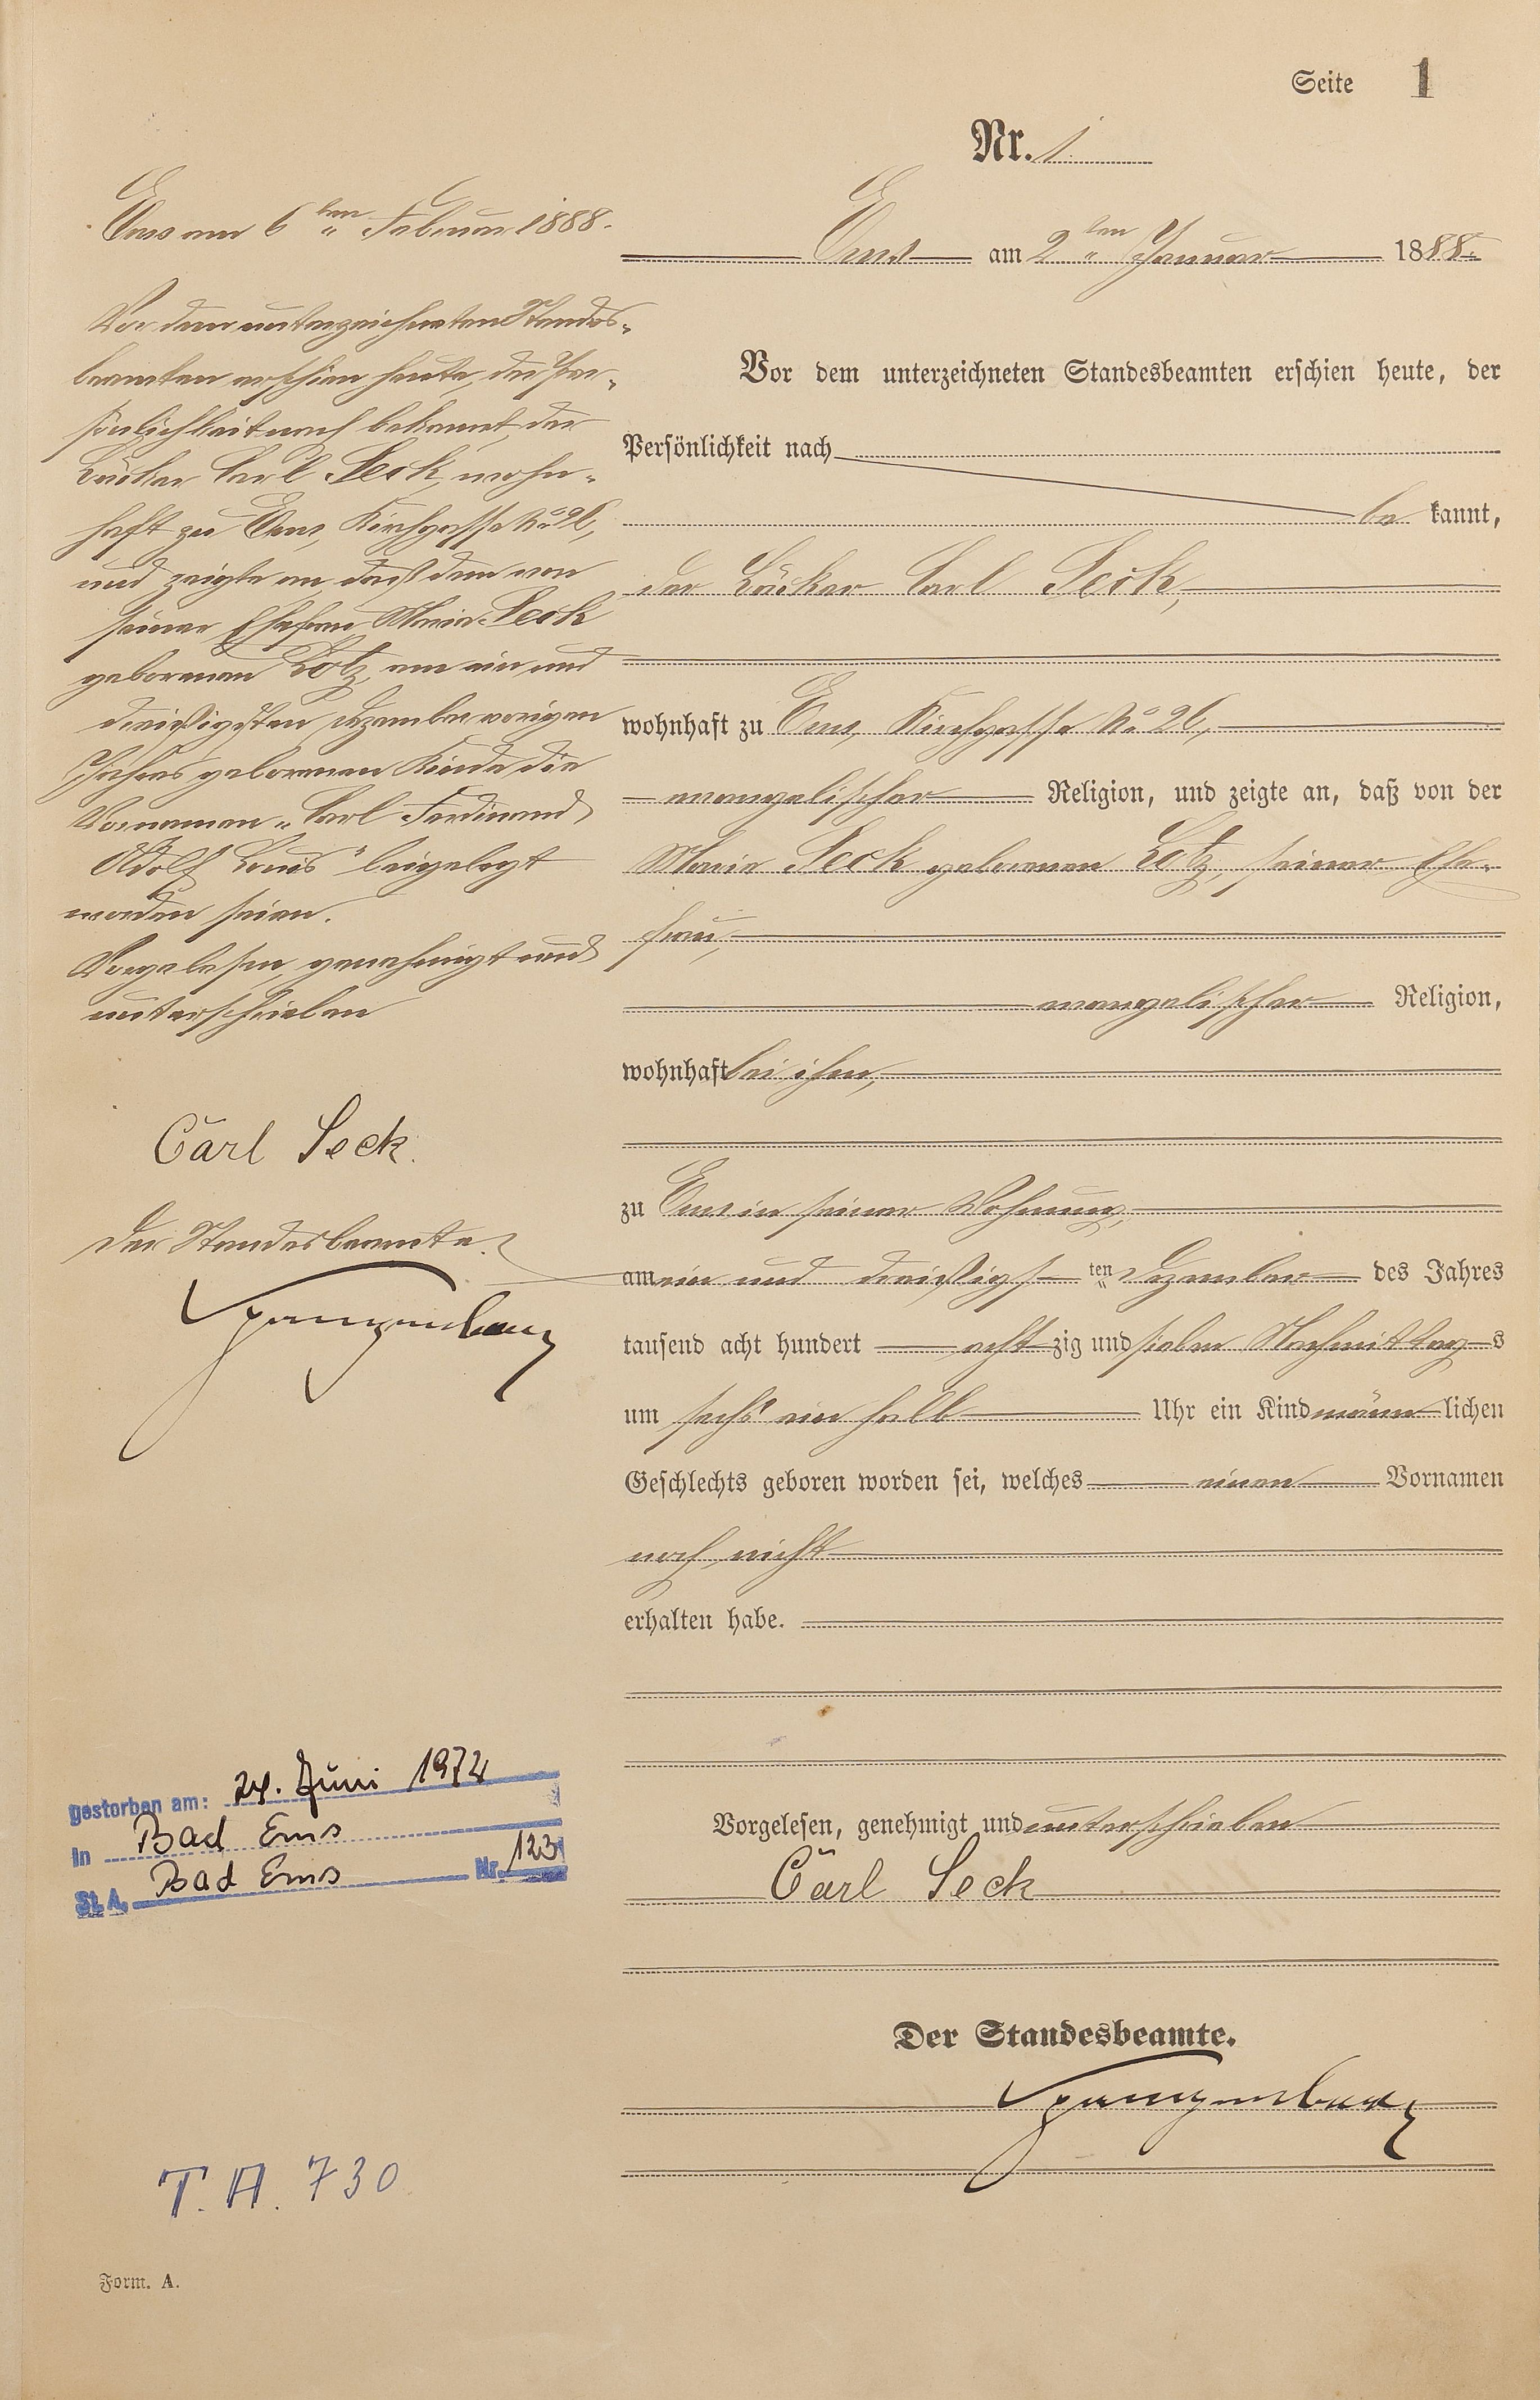 Seite 1
Nr. 1
Ems am 2ten Januar 1888.
Vor dem unterzeichneten Standesbeamten erschien heute, der
Persönlichkeit nach
be kannt,
der Bäcker Carl Seck,
wohnhaft zu Ems, Kirchgasse No 26,
evangelischer Religion, und zeigte an, daß von der
Maria Seck geborenen Lotz, seiner Ehe-
frau,
evangelischer Religion,
wohnhaft bei ihm,
zu Ems in seiner Wohnung,
am ein und dreißigsten Dezember des Jahres
tausend acht hundert achtzig und sieben Nachmittags
um sechs ein halb Uhr ein Kind männlichen
Geschlechts geboren worden sei, welches einen Vornamen
noch nicht
erhalten habe.
Vorgelesen, genehmigt und unterschrieben
Carl Seck
Der Standesbeamte.
Spangenberg
Ems am 6ten Februar 1888.
Vor dem unterzeichneten Standes-
beamten erschien heute, der Per-
sönlichkeit nach bekannt, der
Bäcker Carl Seck, wohn-
haft zu Ems, Kirchgasse No 26,
und zeigte an, daß dem von
seiner Ehefrau Maria Seck
geborenen Lotz, am ein und
dreißigsten Dezember vorigen
Jahres geborenen Kinde die
Vornamen "Carl Ferdinand
Adolf Louis" beigelegt
worden seien.
Vorgelesen, genehmigt und
unterschrieben
Carl Seck.
Der Standesbeamte.
Spangenberg
gestorben am: 24. Juni 1974
in Bad Ems
St. A. Bad Ems Nr. 123
T. A. 730
Form. A.